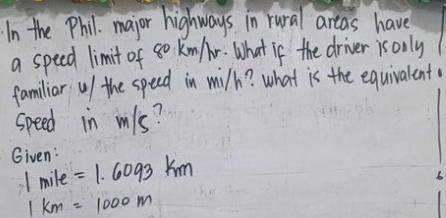 In the Phil. major highways in rural areas have
a speed limit of 80 km/hr. What if the driver is only
familiar w/ the speed in mi/h? what is the equivalent
speed in m/s?
Given:
1 mile = 1.6093 km
1 km = 1000 m